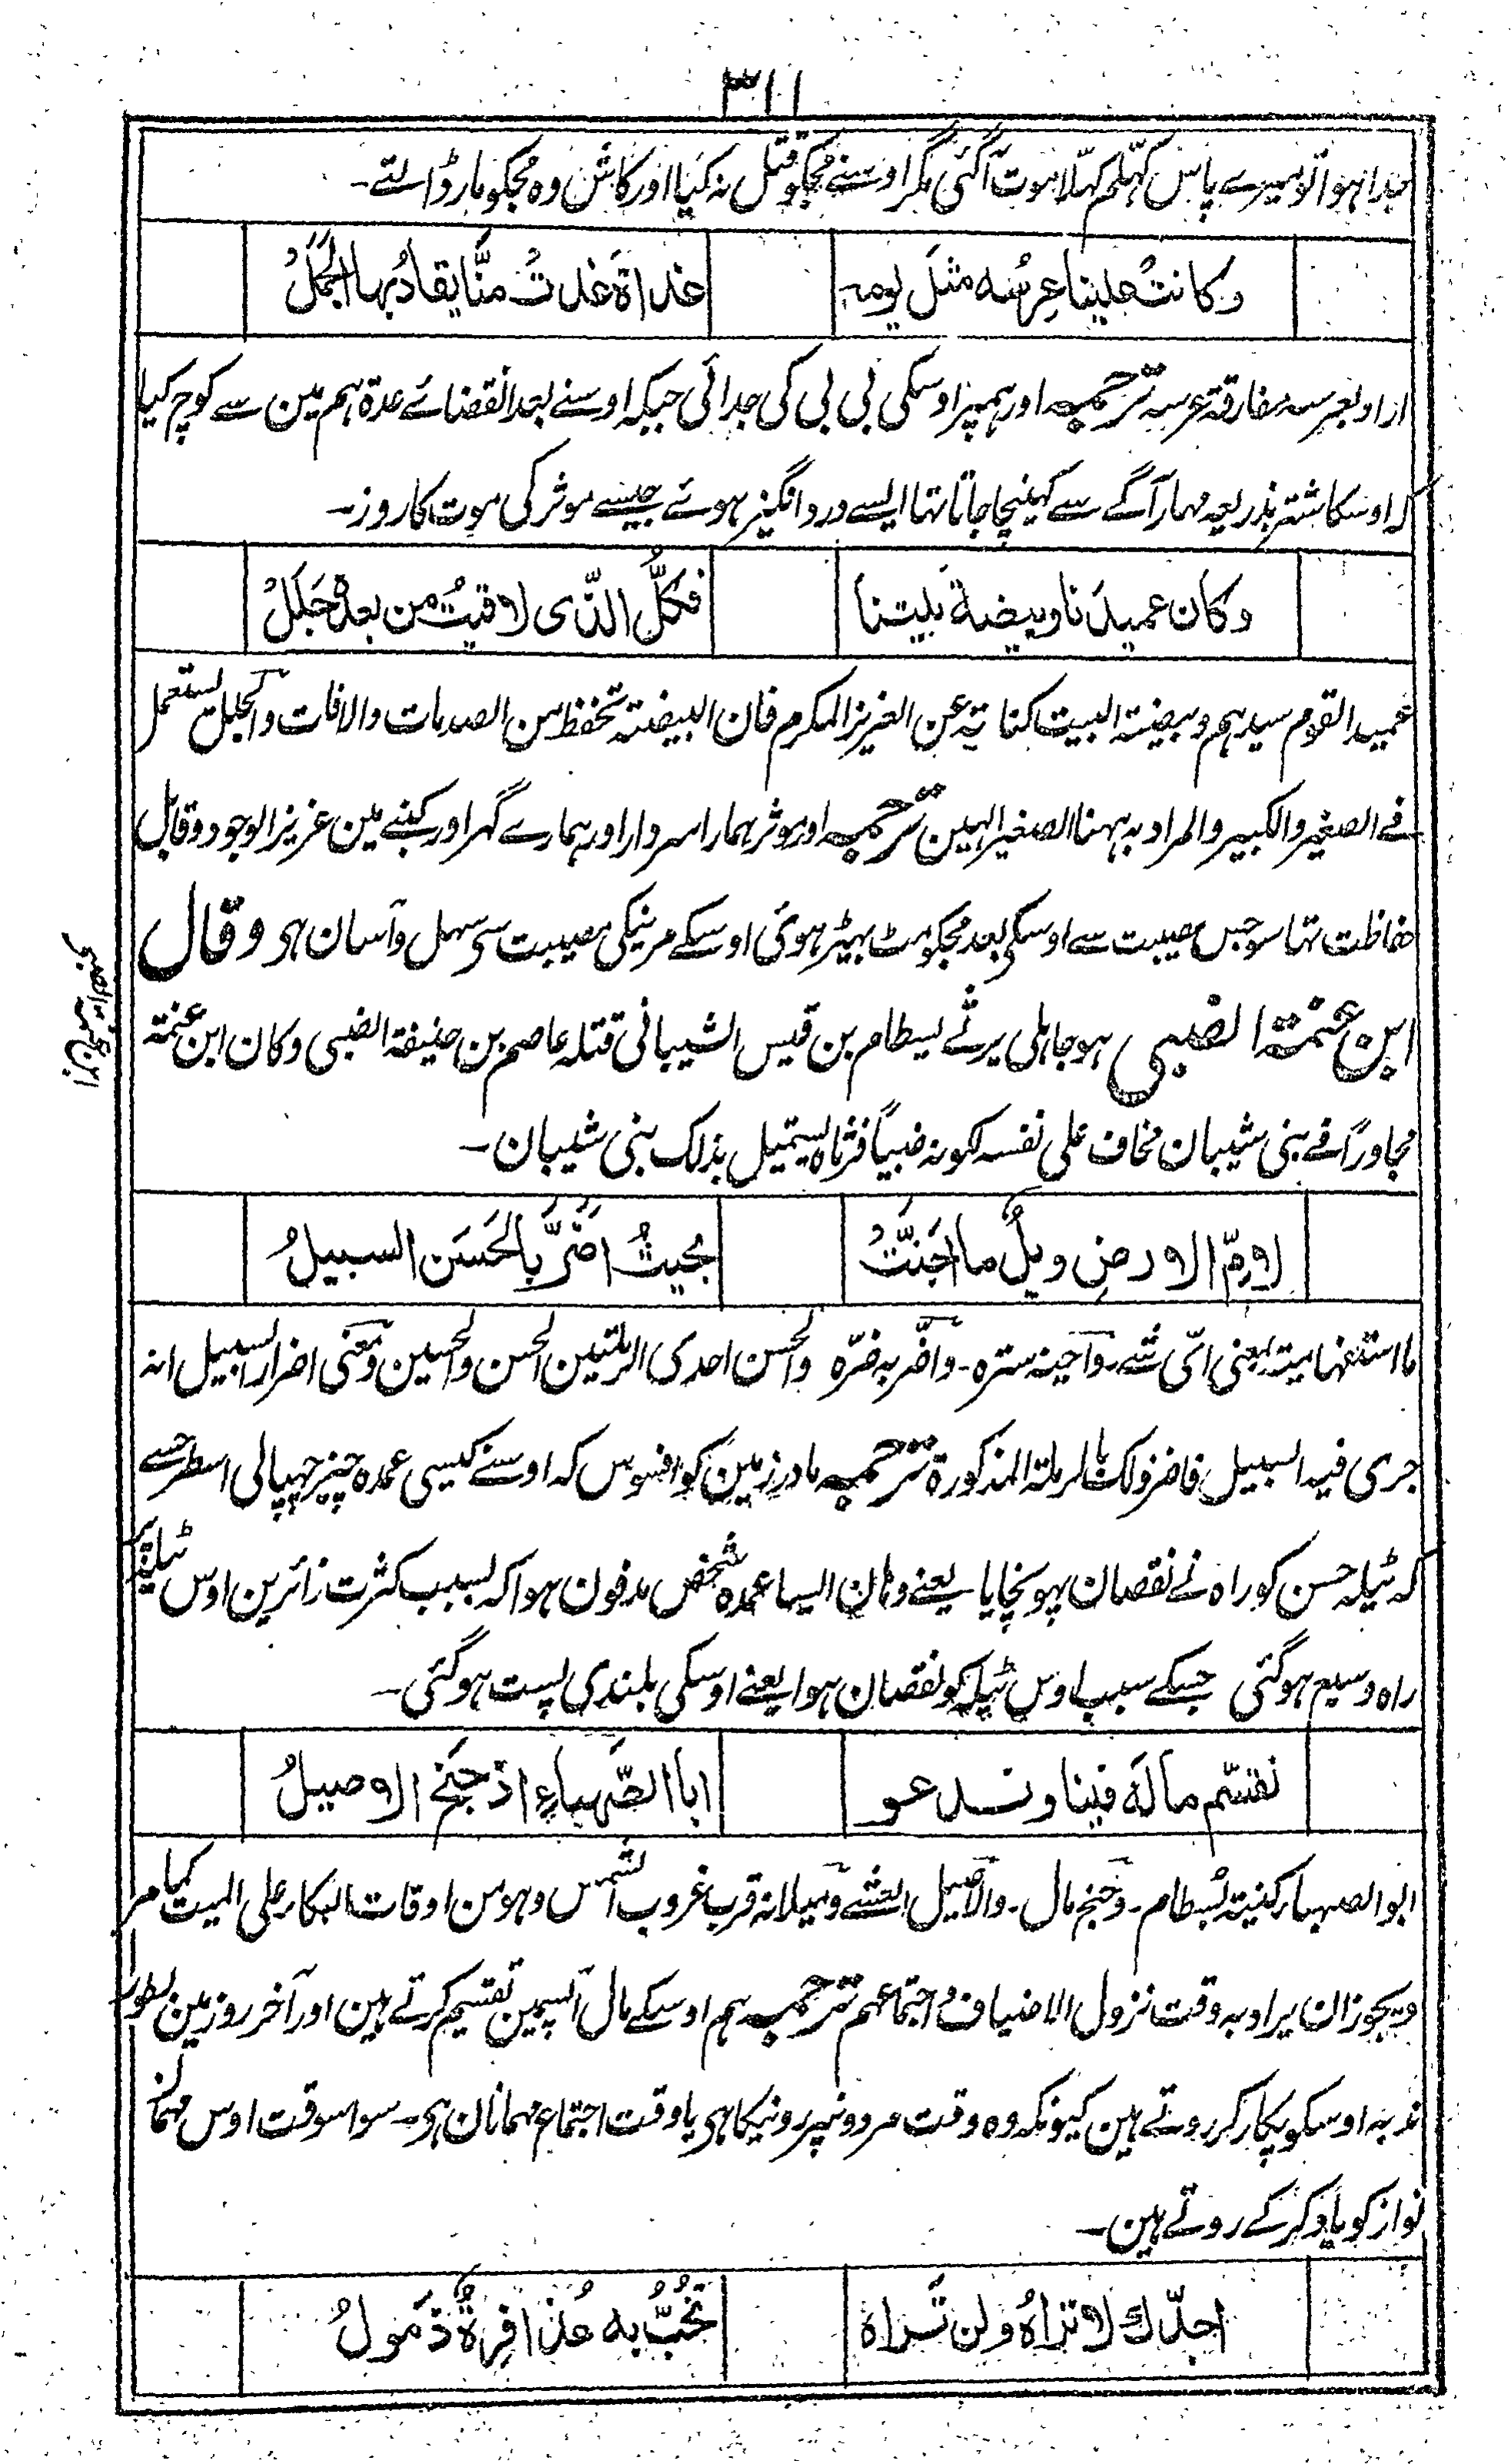 ۳۱۱
جدا ہوا تو میرے پاس کہلم کہلا موت آگئی مگر اوسنے مجکو قتل نہ کیا اور کاش وہ مجکو مار ڈالتے۔
وكانت علينا عِرْسُه مثلَ يومه غداةَ غدتْ منَّا يقادُ بها الجملُ
اراد بعرسہ مفارقۃ عرسہ ترجمہ اور ہمپر اوسکی بی بی کی جدائی جبکہ اوسنے بعد انقضائے عدۃ ہم مین سے کوچ کیا
کہ اوسکا شتر بذریعہ مہار آگے سے کہینچا جاتا تہا ایسے درد انگیز ہوئے جیسے موثر کی موت کا روز۔
وكان عميدَنا وبيضةَ بيتنا فكلُّ الذّى لاقيتُ من بعدهٖ جَلَلُ
عمید القوم سیدہم وبیضۃ البیت کنایۃ عن العزیز المکرم فان البیضۃ تحفظ من الصدمات والافات والجلل یستعمل
فے الصغیر والکبیر والمراد بہ ہہنا الصغیر الہین ترجمہ اور موثر ہمارا سردار اور ہمارے گہر اور کنبے مین عزیز الوجود و قابل
حفاظت تہا سو جس مصیبت سے اوسکی بعد مجکو مٹ بہیڑ ہوئی اوسکے مرنیکی مصیبت سی سہل و آسان ہی وقال
ابن عنمۃ الضبی ہو جاہلی یرثے بسطام بن قیس الشیبانی قتلہ عاصم بن خلیفۃ الضبی وکان ابن عنمۃ
ابن عنمۃ الضبی
مجاوراً فے بنی شیبان فخاف علی نفسہ لکونہ ضبیاً فرثاہ یستمیل بذلک بنی شیبان۔
لِاُمِّ الارضِ ويلٌ ما اَجَنَّتْ بحيثُ اضرَّ بالحَسَنِ السبيلُ
ما استفہامیۃ بمعنی ائ شے۔ واجنہ سترہ۔ واضر بہ ضرّہ والحسن احدی الرملتین الحسن والحسین ومعنی اضرار السبیل انہ
جری فیہ السبیل فاضر ذلک بالرملۃ المذکورۃ ترجمہ مادر زمین کو افسوس کہ اوسنے کیسی عمدہ چیز چہپالی اسطرحسے
کہ ٹیلہ حسن کو راہ نے نقصان پہونچایا یعنے وہان ایسا عمدہ شخص مدفون ہوا کہ بسبب کثرت زائرین اوس ٹیلہ پر
راہ وسیع ہوگئی جسکے سبب اوس ٹیلہ کو نقصان ہوا یعنے اوسکی بلندی پست ہوگئی۔
نقسّم مالَهٗ فينا وندعو ابا الصَّهباءِ اذ جَنَحَ الاصيلُ
ابو الصہباء کنیۃ بسطام۔ وجنح مال۔ والاصیل العشے ومیلانہ قرب غروب الشمس وہو من اوقات البکاء علی المیت کما مر
ویجوز ان یراد بہ وقت نزول الاضیاف و اجتماعہم ترجمہ ہم اوسکے مال آپسمین تقسیم کرتے ہین اور آخر روز مین بطور
ندبہ اوسکو پکار کر روتے ہین کیونکہ وہ وقت مردونپر رونیکا ہی یا وقت اجتماع مہمانان ہی۔ سو اسوقت اوس مہمان
نواز کو یاد کرکے روتے ہین۔
اجدّك لا تراهُ ولن تَراه تخُبُّ به عُذافِرةٌ ذَمولُ